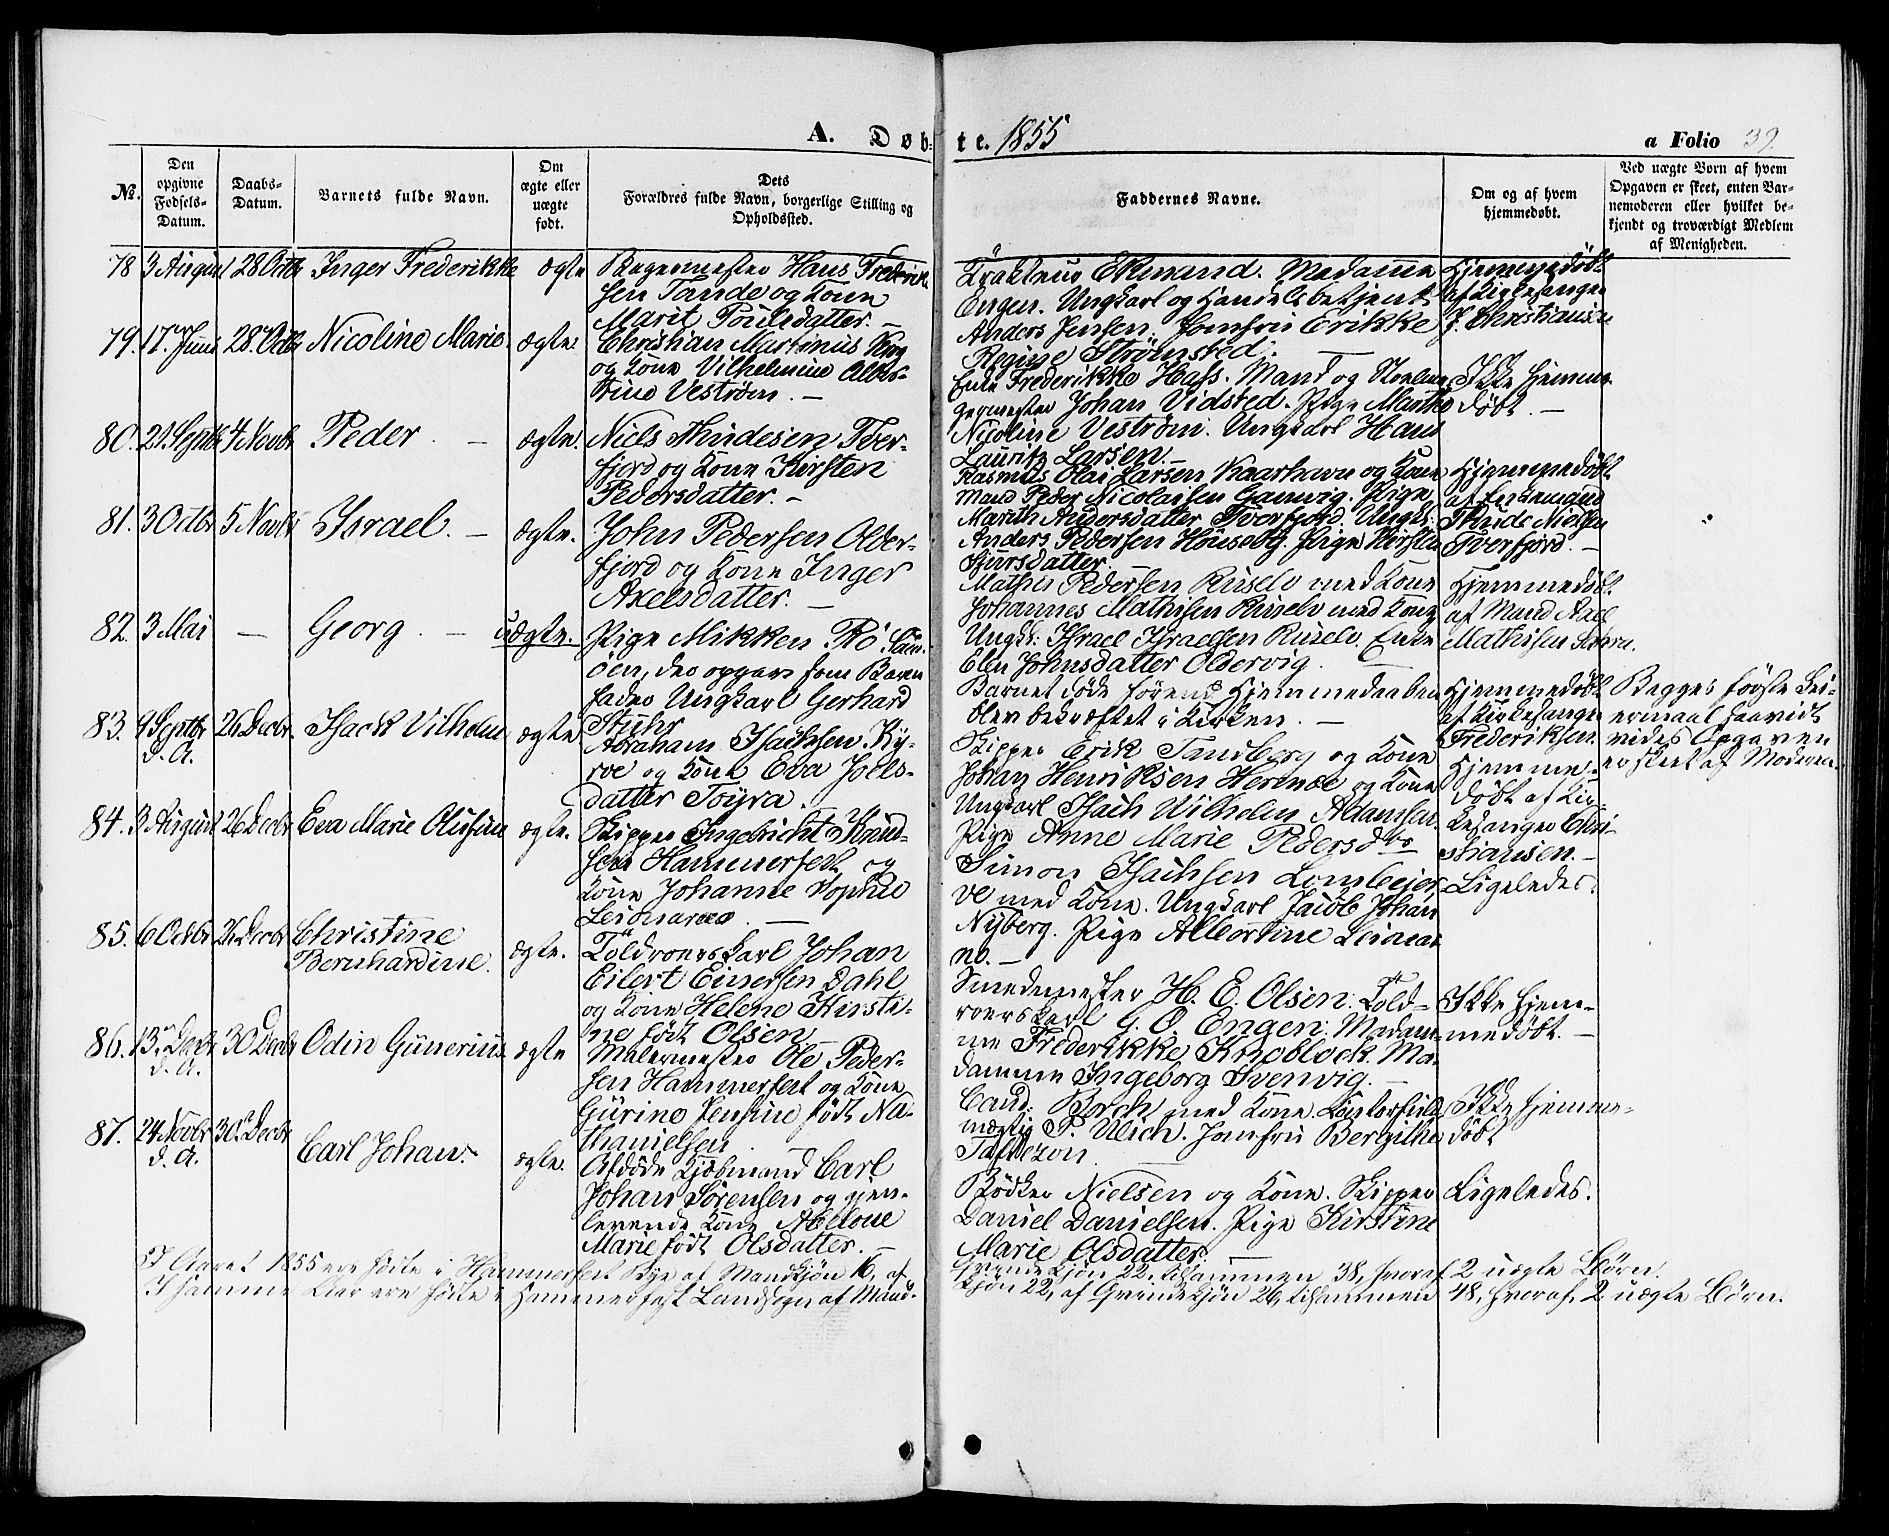 A. Døb-
te. 1855
a Folio 39.
No.
Den
opgivne
Fødsels-
Datum.
Daabs-
Datum.
Barnets fulde Navn.
Om
ægte eller
uægte
født.
Dets
Forældres fulde Navn, borgerlige Stilling og
Opholdssted.
Faddernes Navne.
Om og af hvem
hjemmedøbt.
Ved uægte Børn af hvem
Opgaven er skeet, enten Bar-
nemoderen eller hvilket be-
kjendt og troværdigt Medlem
af Menigheden.
78 3 August 28 Octbr Inger Frederikke ægte
Bagermester Hans Frederik
sen Tande og Kone
Marit Poulsdatter. —
Ekstrand. Madame
Engen. Ungkarl og Handelsbetjent
Anders Jensen. Jomfru Erikke
Regine Strømsted.
Hjemmedøbt
af Kirkesanger
J. Christiansen
79. 17. Juni 28. Octbr Nicoline Marie. ægte.
Christian Martinus Krog
og Kone Vilhelmine Alber-
tine Vestrøm. —
Enke Frederikke Hass. Mand og
Johan Vidsted. Pige Marthe
Nicoline Vestrøm. Ungkarl Hans
Lauritz Larsen.
Ikke hjemme-
døbt. —
80. 21. Septbr 4 Novbr Peder. — ægte.
Niels Thudesen Tver-
fjord og Kone Kirsten
Pedersdatter. —
Rasmus Olai Larsen Kaarhavn og Kone
Mand Peder Nicolaisen Gamvig. Pige
Marith Andersdatter Tverfjord. Ungk.
Anders Pedersen Hønseby. Pige Kirsten
Sjursdatter.
Hjemmedøbt
af
Thude Nielsen
Tverfjord. —
81. 3 Octbr 5 Novbr Israel. — ægte.
John Pedersen Older-
fjord og Kone Inger
Axelsdatter. —
Mathis Pedersen Ruselv med Kone
Johannes Mathisen Ruselv med Kone
Ungk: Israel Israelsen Ruselv. Enke
Elen Johnsdatter Oldervig.
Hjemmedøbt
af Mand Axel
Mathisen
82. 3 Mai — Georg. — uægte.
Pige Mikken Rø
øen, der opgav som Barne
fader Ungkarl Gerhard
Stuhr
Barnet døde førend Hjemmedaaben
blev bekræftet i Kirken. —
Hjemmedøbt
af Kirkesanger
Frederiksen.
Begges første Lei-
ermaal saavidt
vides Opgaven
er skeet af Moderen.
83. 9 Septbr 26 Decbr. Isack Vilhelm ægte
d. A.
Abraham Isachsen Ky-
rve og Kone Eva Joels-
datter Toyra.
Skipper Erik Tandberg og Kone
Johan Henriksen og Kone
Ungkarl Isach Wilhelm Adamsen.
Pige Anne Marie Pedersdtr
Hjemme-
døbt af Kir-
kesanger Chri-
stiansen. —
84. 3 August 26 Decbr Eva Marie Olufine ægte.
Skipper Ingebricht Knud-
sen Hammerfest og
Kone Johanne Sophie
Leinarea. —
Simon Isachsen Lombejer
ve med Kone. Ungkarl Jacob Johan
Nyberg. Pige Albertine Leinar
no. —
Ligeledes.
85. 6 Octbr 26 Decbr Christine ægte.
Bernhardine.
Toldroerskarl Johan
Eilert Einersen Dahl
og Kone Helene Kirsti-
ne født Olsen
Smedmester H. E. Olsen. Told-
roerskarl G. O. Engen. Madam-
me Frederikke Knoblock. Ma-
damme Ingeborg Svenvig. —
Ikke hjem-
medøbt. —
86. 13. Decbr 30 Decbr Odin Gunerius. ægte
d. A.
Malermester Ole Peder-
sen Hammerfest og Kone
Gurine Jensine født Na-
thanielsen
Cand. Borch med Kone. Contorfuld
mægtig P. Ulich. Jomfru Bergithe
Ikke hjemme-
døbt
87. 24 Novbr 30. Decbr Carl Johan. ægte.
d. A.
Afdøde Kjøbmand Carl
Johan Sørensen og gjen-
levende Kone Abelone
Marie født Olsdatter. —
Bødker Nielsen og Kone. Skipper
Daniel Danielsen. Pige Kirstine
Marie Olsdatter. —
Ligeledes.
I Aaret 1855 ere fødte i Hammerfest Bye af Mandkjøn 16, af
Qvindekjøn 22, tilsammen 38, hvoraf 2 uægte Børn.
I samme Aar ere fødte i Hammerfest Landsogn af Mand-
kjøn 22, af Qvindekjøn 26, tilsammen 48, hvoraf 2 uægte Børn.